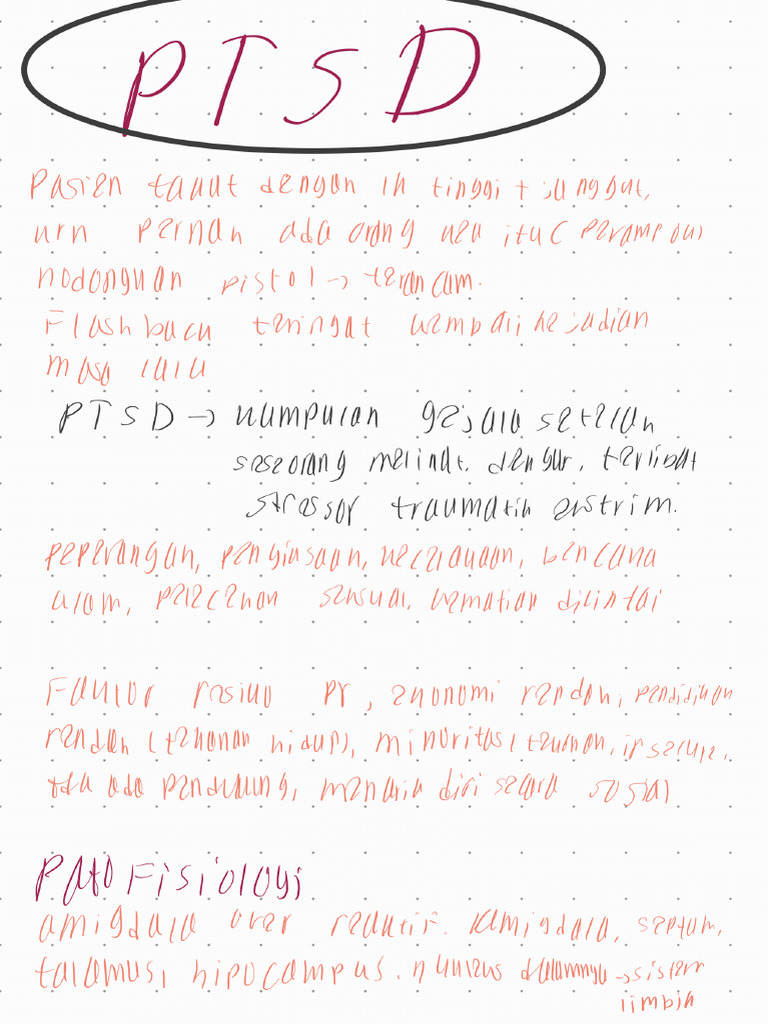 PTSD
Pasien takut dengan lk tinggi + janggut,
krn pernah ada orang kek itu (perampok)
nodongkan pistol → terancam.
Flashback teringat kembali kejadian
masa lalu
PTSD → kumpulan gejala setelah
seseorang melihat, dengar, terlibat
stressor traumatik ekstrim.
peperangan, penyiksaan, kecelakaan, bencana
alam, pelecehan seksual, kematian dicintai
Faktor resiko pr, ekonomi rendah, pendidikan
rendah (tekanan hidup), minoritas (tekanan,
tdk ada pendukung, menarik diri secara sosial
Patofisiologi
amigdala over reaktif. (amigdala, septum,
talamus, hipocampus. nukleus dalamnya → sistem
limbik